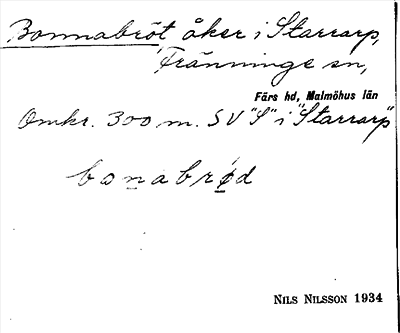 Bonnabröt åker i Starrarp,
Fränninge sn,
Färs hd, Malmöhus län
Omkr. 300 m. SV "S" i "Starrarp"
bonabrǿd
NILS NILSSON 1934